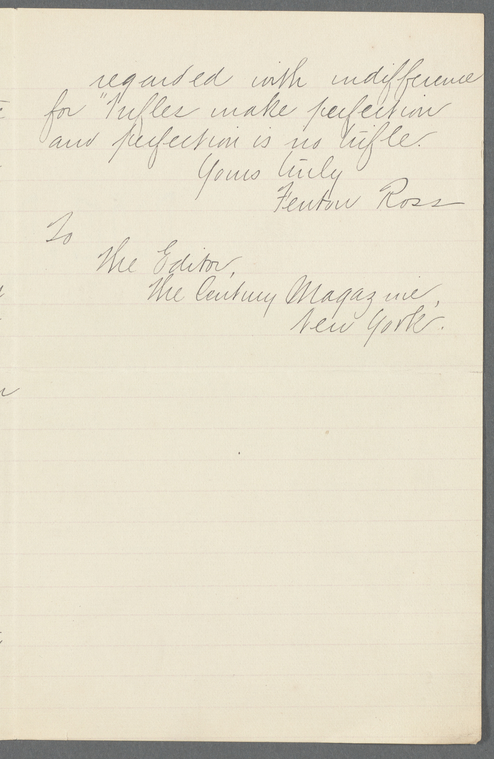 regarded with indifference
for "Trifles make perfection
and perfection is no trifle.
Yours truly
Fenton Ross
To
The Editor,
The Century Magazine,
New York.